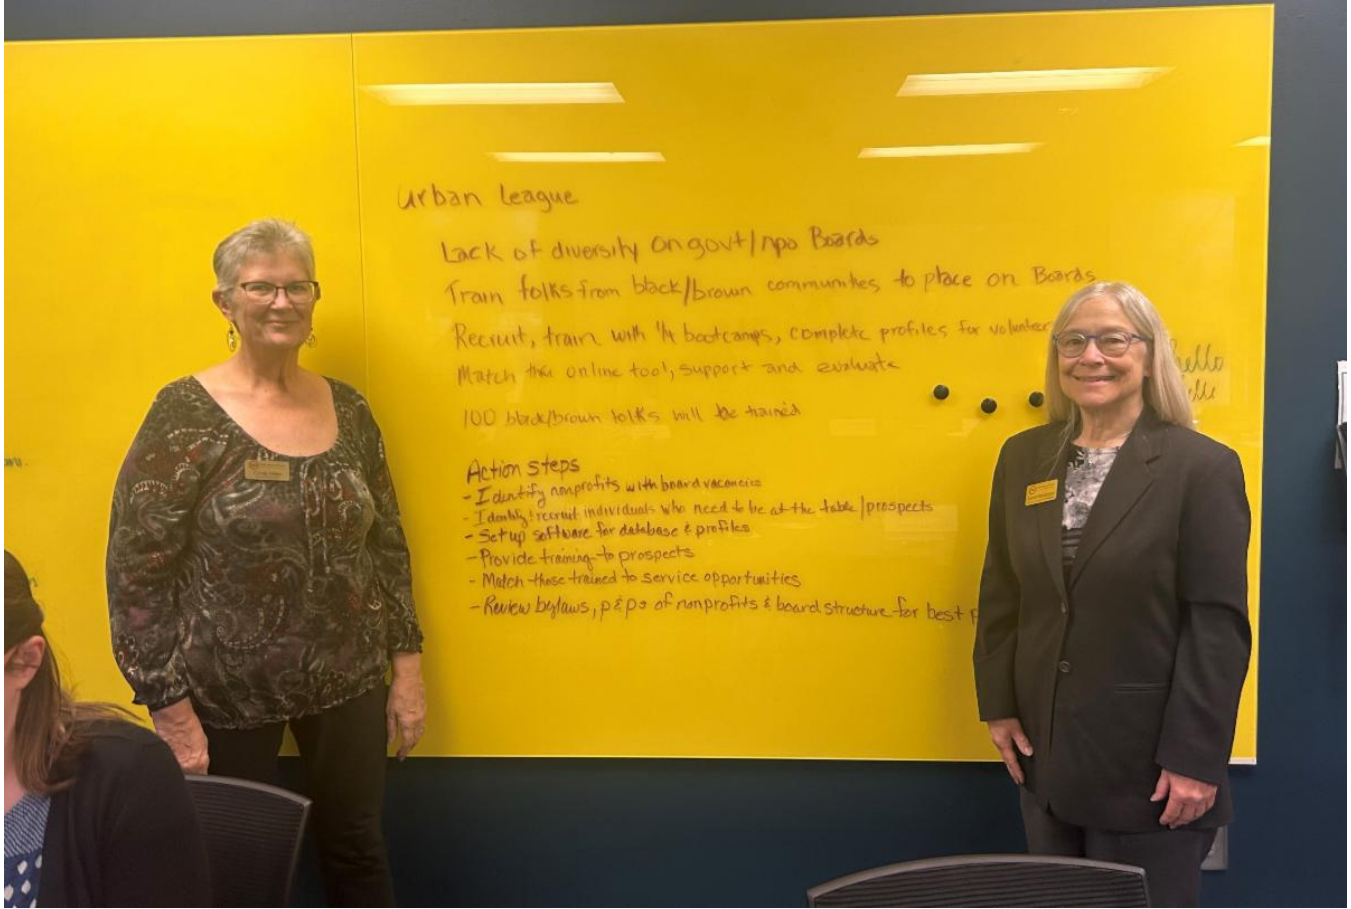 Urban League
Lack of diversity on govt/npo Boards
Train folks from black/brown communities to place on Boards
Recruit, train with 1/4 bootcamps, complete profiles for volunteer
Match thru online tool, support and evaluate
hello
100 black/brown folks will be trained
Action steps
- Identify nonprofits with board vacancies
- Identify & recruit individuals who need to be at the table/prospects
- Set up software for database & profiles
- Provide training to prospects
- Match those trained to service opportunities
- Review bylaws, p&ps of nonprofits & board structure for best p